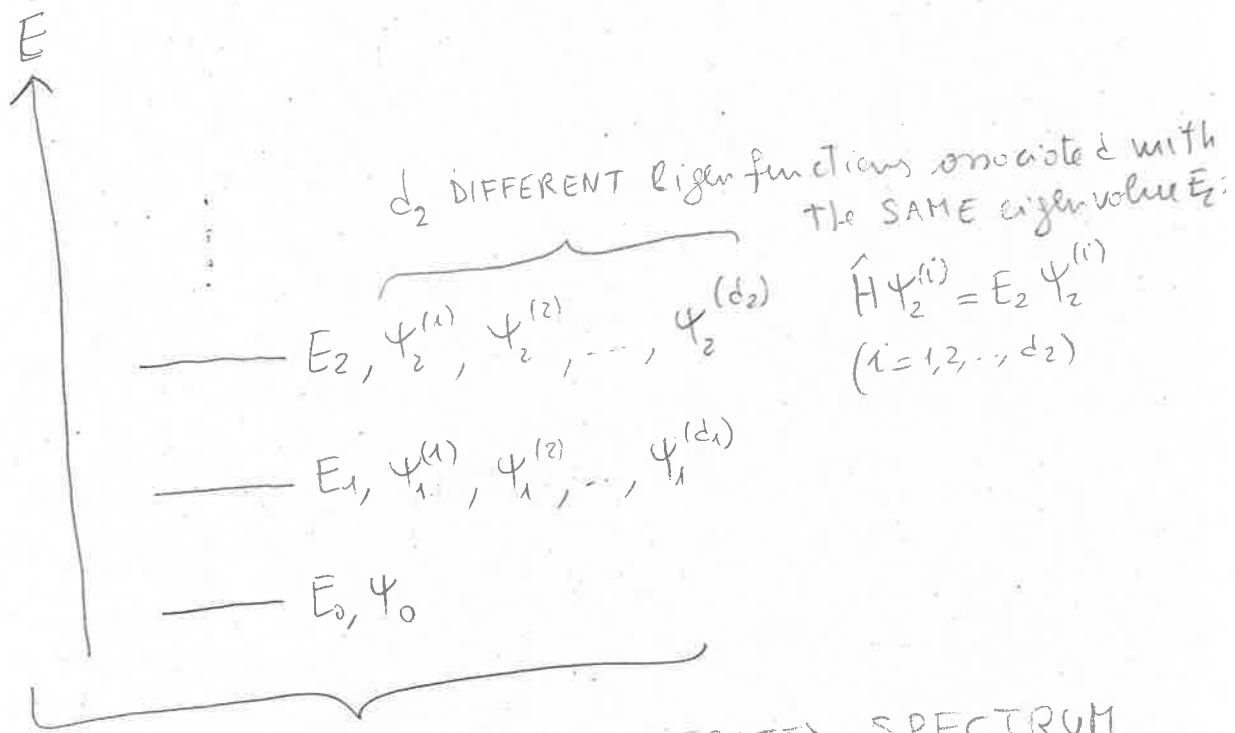 E
d₂ DIFFERENT eigenfunctions associated with
the SAME eigenvalue E₂:
Ĥ ψ₂⁽ⁱ⁾ = E₂ ψ₂⁽ⁱ⁾
(i = 1,2,.., d₂)
E₂, ψ₂⁽¹⁾, ψ₂⁽²⁾, ..., ψ₂⁽ᵈ²⁾
E₁, ψ₁⁽¹⁾, ψ₁⁽²⁾, .., ψ₁⁽ᵈ¹⁾
E₀, ψ₀
SPECTRUM